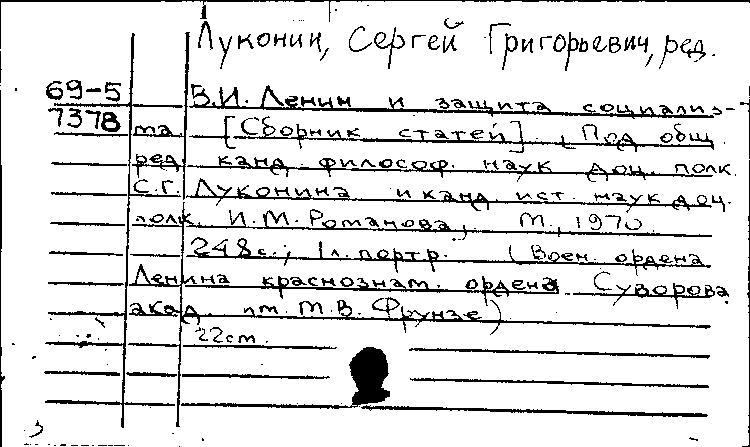 Луконин, Сергей Григорьевич, ред.
69-5 В.И. Ленин и защита социализ-
7378 ма [Сборник статей]. (Под общ.
ред. канд. философ. наук доц. полк.
С.Г. Луконина и канд. ист. наук доц.
полк. И.М. Романова, М., 1970
248 с.; 1 л. портр. (Воен. ордена
Ленина краснознам. ордена Суворова
акад. им. М.В. Фрунзе)
22 cm.